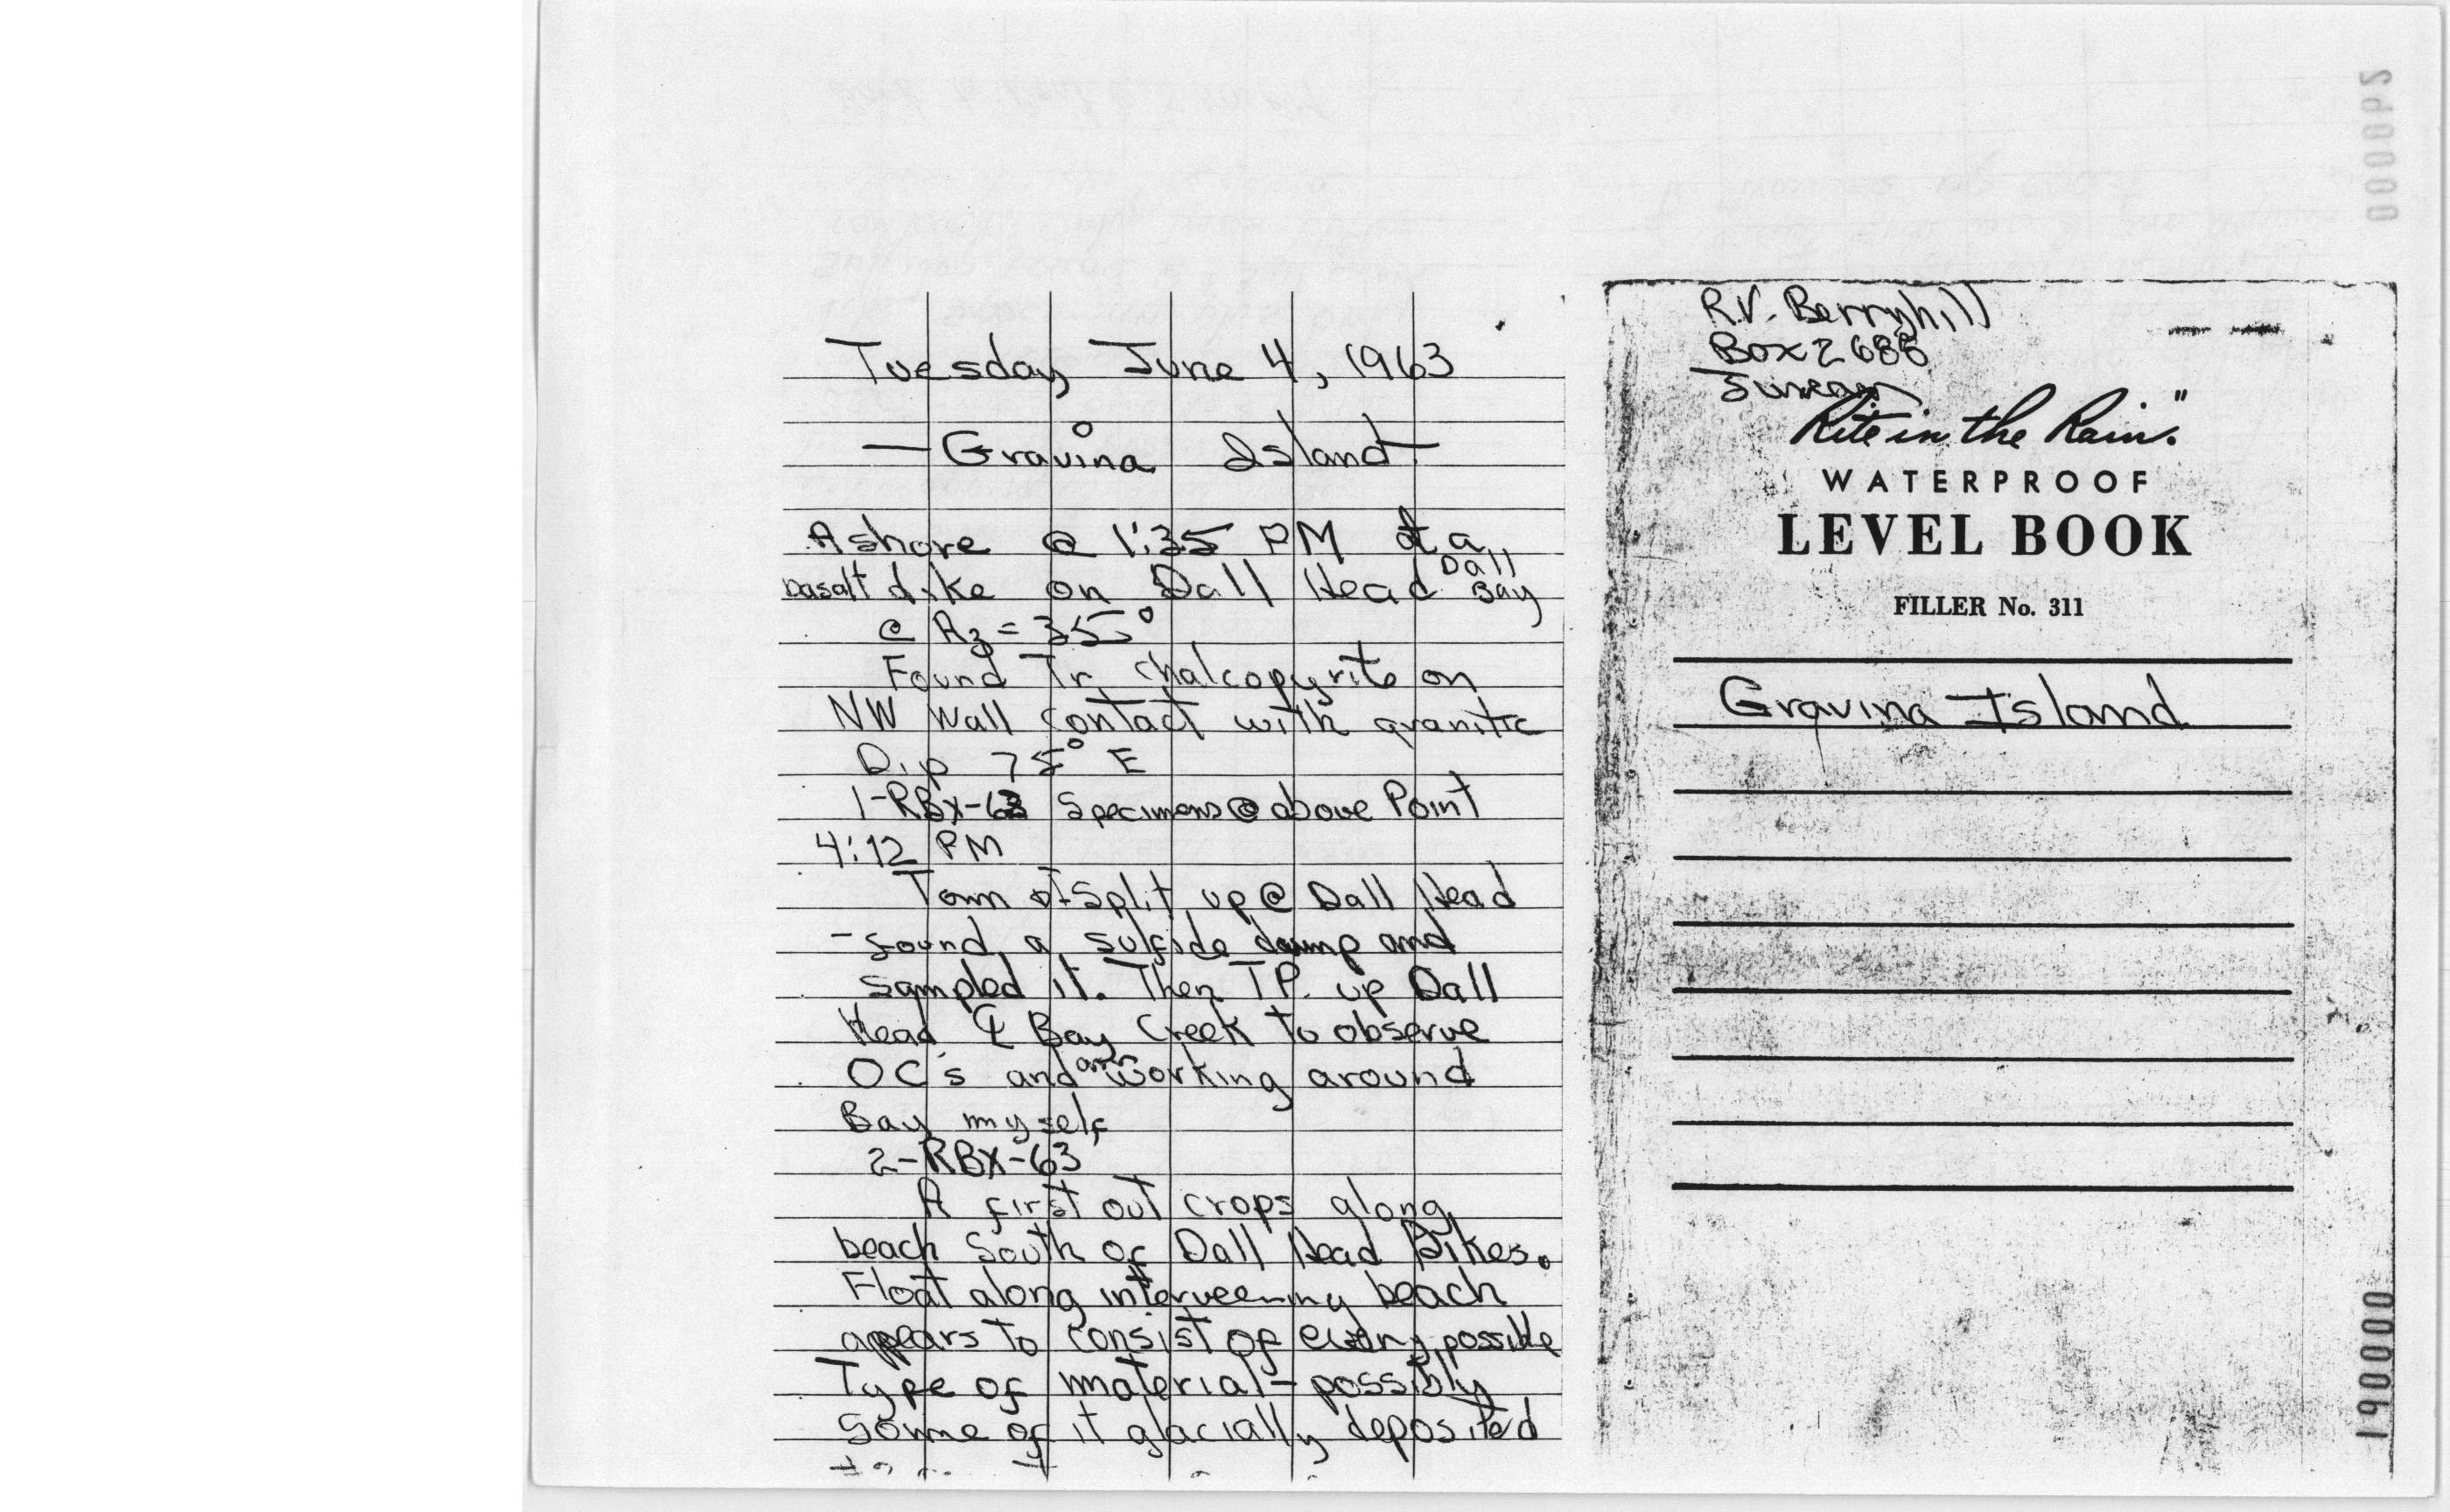 Tuesday June 4, 1963
— Gravina Island —
Ashore @ 1:35 PM at a
basalt dike on Dall Head Dall Bay
@ Az = 355°
Found Tr. chalcopyrite on
NW Wall contact with granitic
Dip 75° E
1-RBX-63 Specimens @ above Point
4:12 PM
Tom & I Split up @ Dall Head
- found a sulfide dump and
sampled it. Then TP. up Dall
Head Bay Creek to observe
OC's and am working around
Bay myself
2-RBX-63
A first out crops along
beach South of Dall Head Dikes.
Float along interveening beach
appears to consist of every possible
Type of material - possibly
Some of it glacially deposited
R.V. Berryhill
Box 2688
Juneau
"Rite in the Rain"
WATERPROOF
LEVEL BOOK
FILLER No. 311
Gravina Island
000062
000061